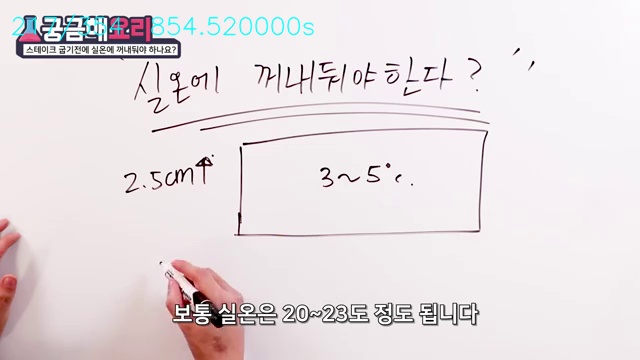 854.520000s
궁금해요리
스테이크 굽기전에 실온에 꺼내둬야 하나요?
"실온에 꺼내둬야한다?"
2.5cm↑
3~5℃.
보통 실온은 20~23도 정도 됩니다